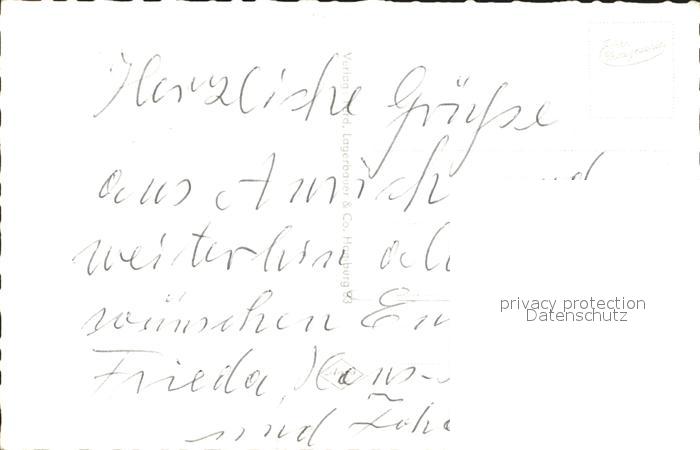 Herzliche Grüße
aus Aurich und
weiterhin
wünschen
Frieda, Hans-
und
Verlag Ferd. Lagerbauer & Co. Hamburg
privacy protection
Datenschutz